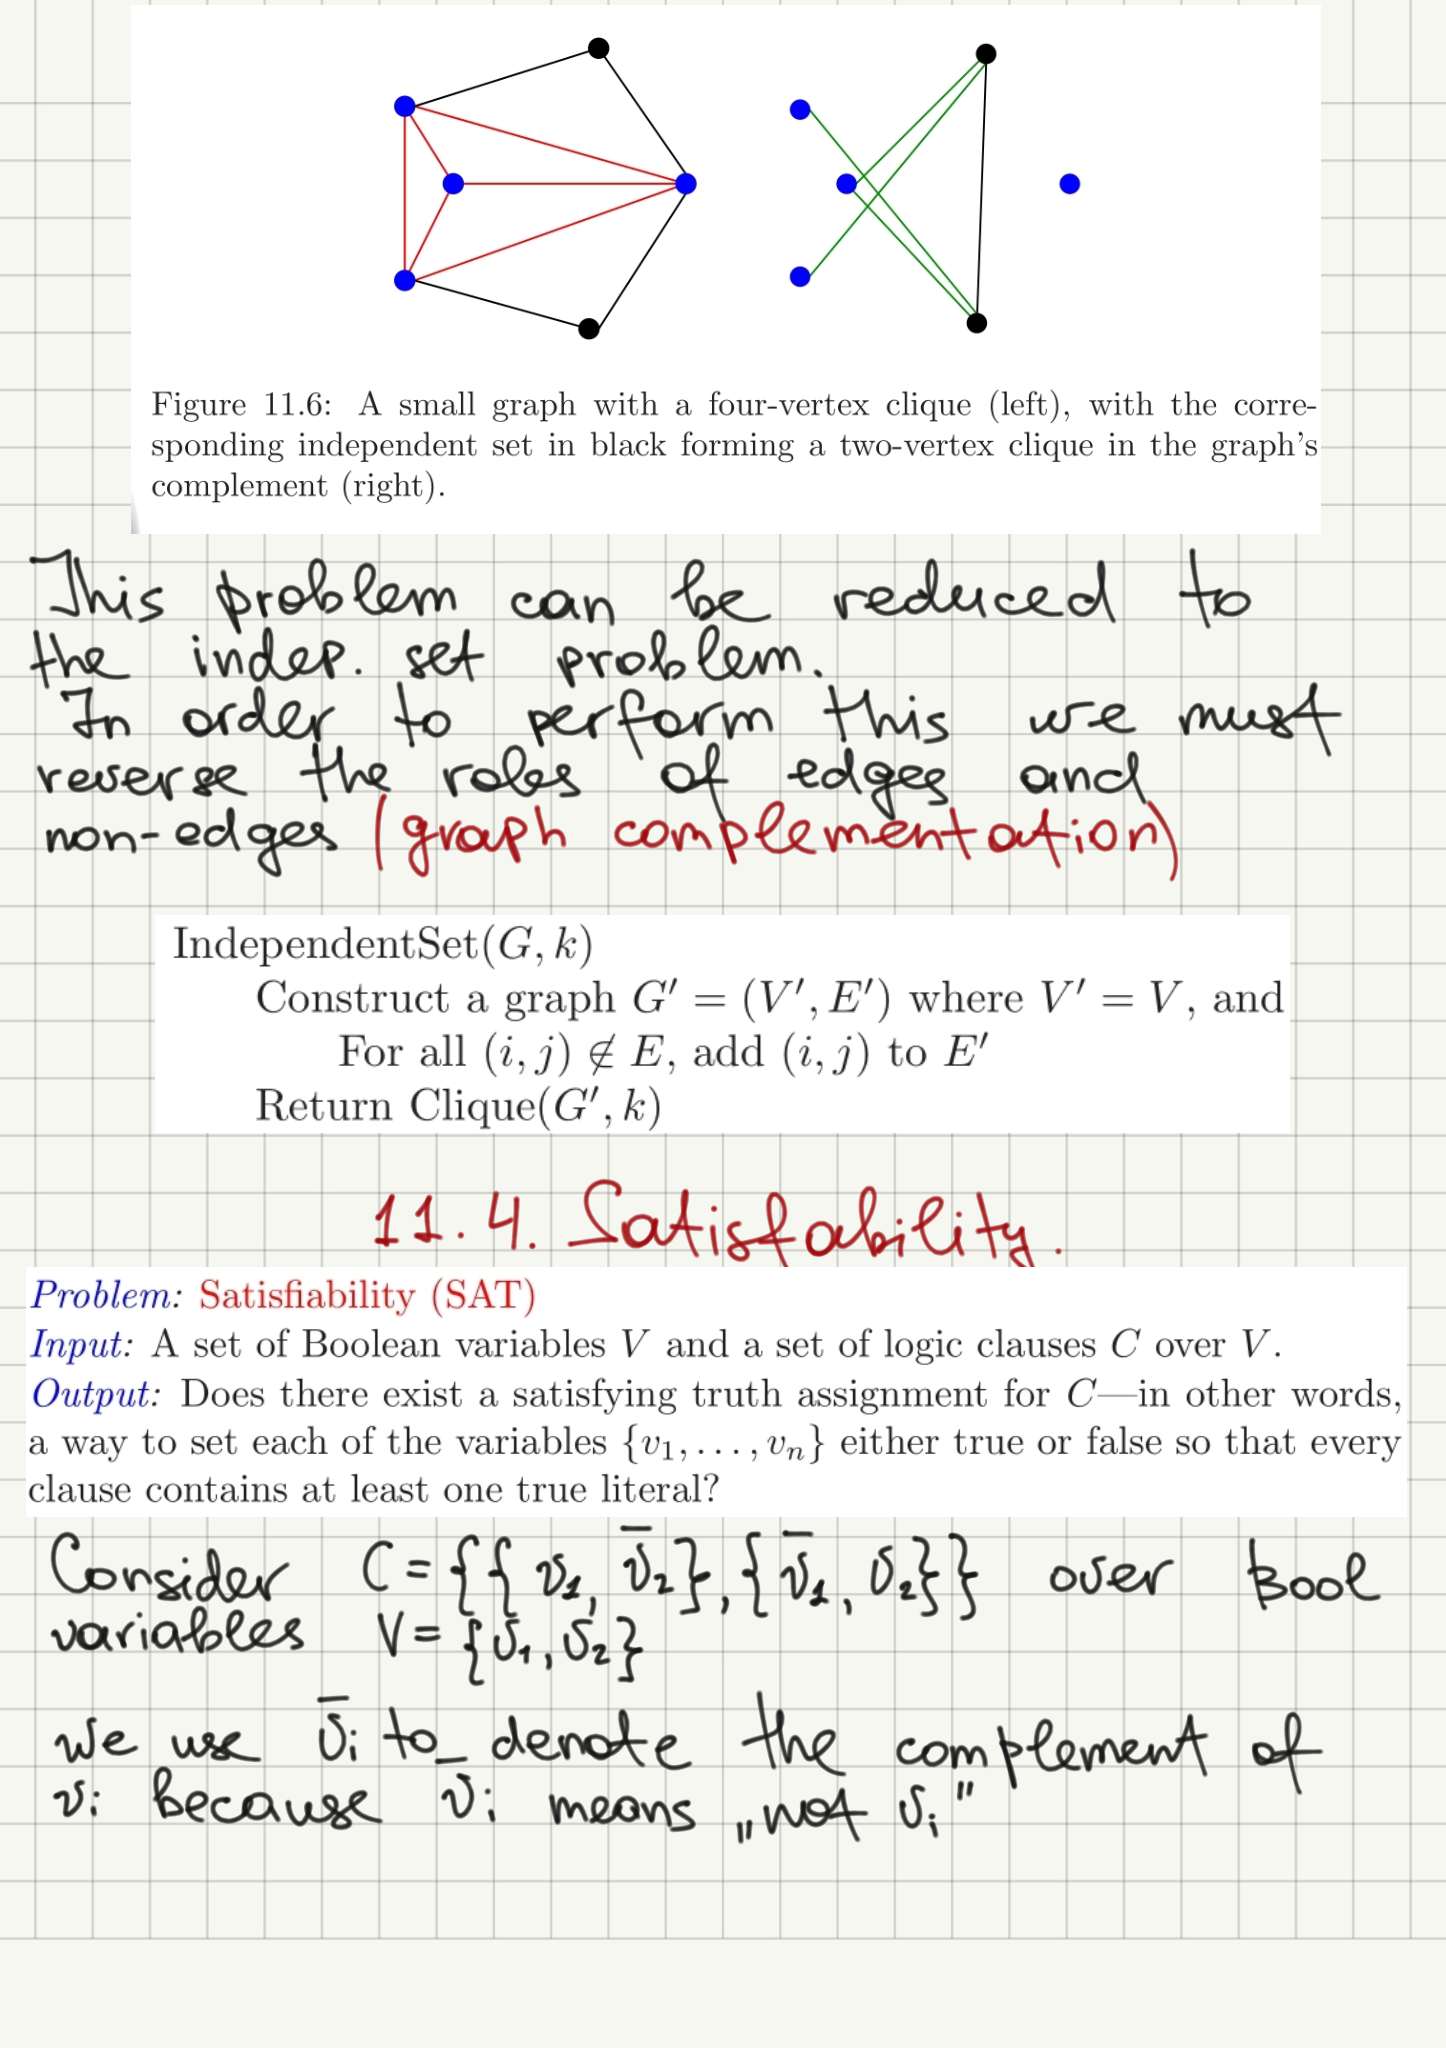 Figure 11.6: A small graph with a four-vertex clique (left), with the corre-
sponding independent set in black forming a two-vertex clique in the graph's
complement (right).
This problem can be reduced to
the indep. set problem.
In order to perform this we must
reverse the roles of edges and
non-edges (graph complementation)
IndependentSet(G, k)
Construct a graph G′ = (V′, E′) where V′ = V, and
For all (i, j) ∉ E, add (i, j) to E′
Return Clique(G′, k)
11.4. Satisfability.
Problem: Satisfiability (SAT)
Input: A set of Boolean variables V and a set of logic clauses C over V.
Output: Does there exist a satisfying truth assignment for C—in other words,
a way to set each of the variables {v₁, . . . , vₙ} either true or false so that every
clause contains at least one true literal?
Consider C = {{v₁, v̄₂}, {v̄₁, v₂}} over Bool
variables V = {v₁, v₂}
We use v̄i to denote the complement of
vi because v̄i means „not vi"